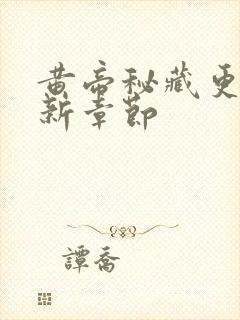 黄帝秘藏更
新章節
譚喬